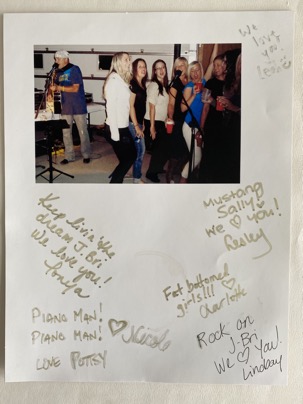 We
love
you
Keep livin' the
dream J. Bri
We love you!
Mustang
Sally
We ♡ you!
Lesley
Fat bottomed
girls!!! ♡
Charlotte
PIANO MAN!
PIANO MAN!
LOVE POTTSY
♡ Nicole
Rock on
J-Bri
We ♡ You!
Lindsay